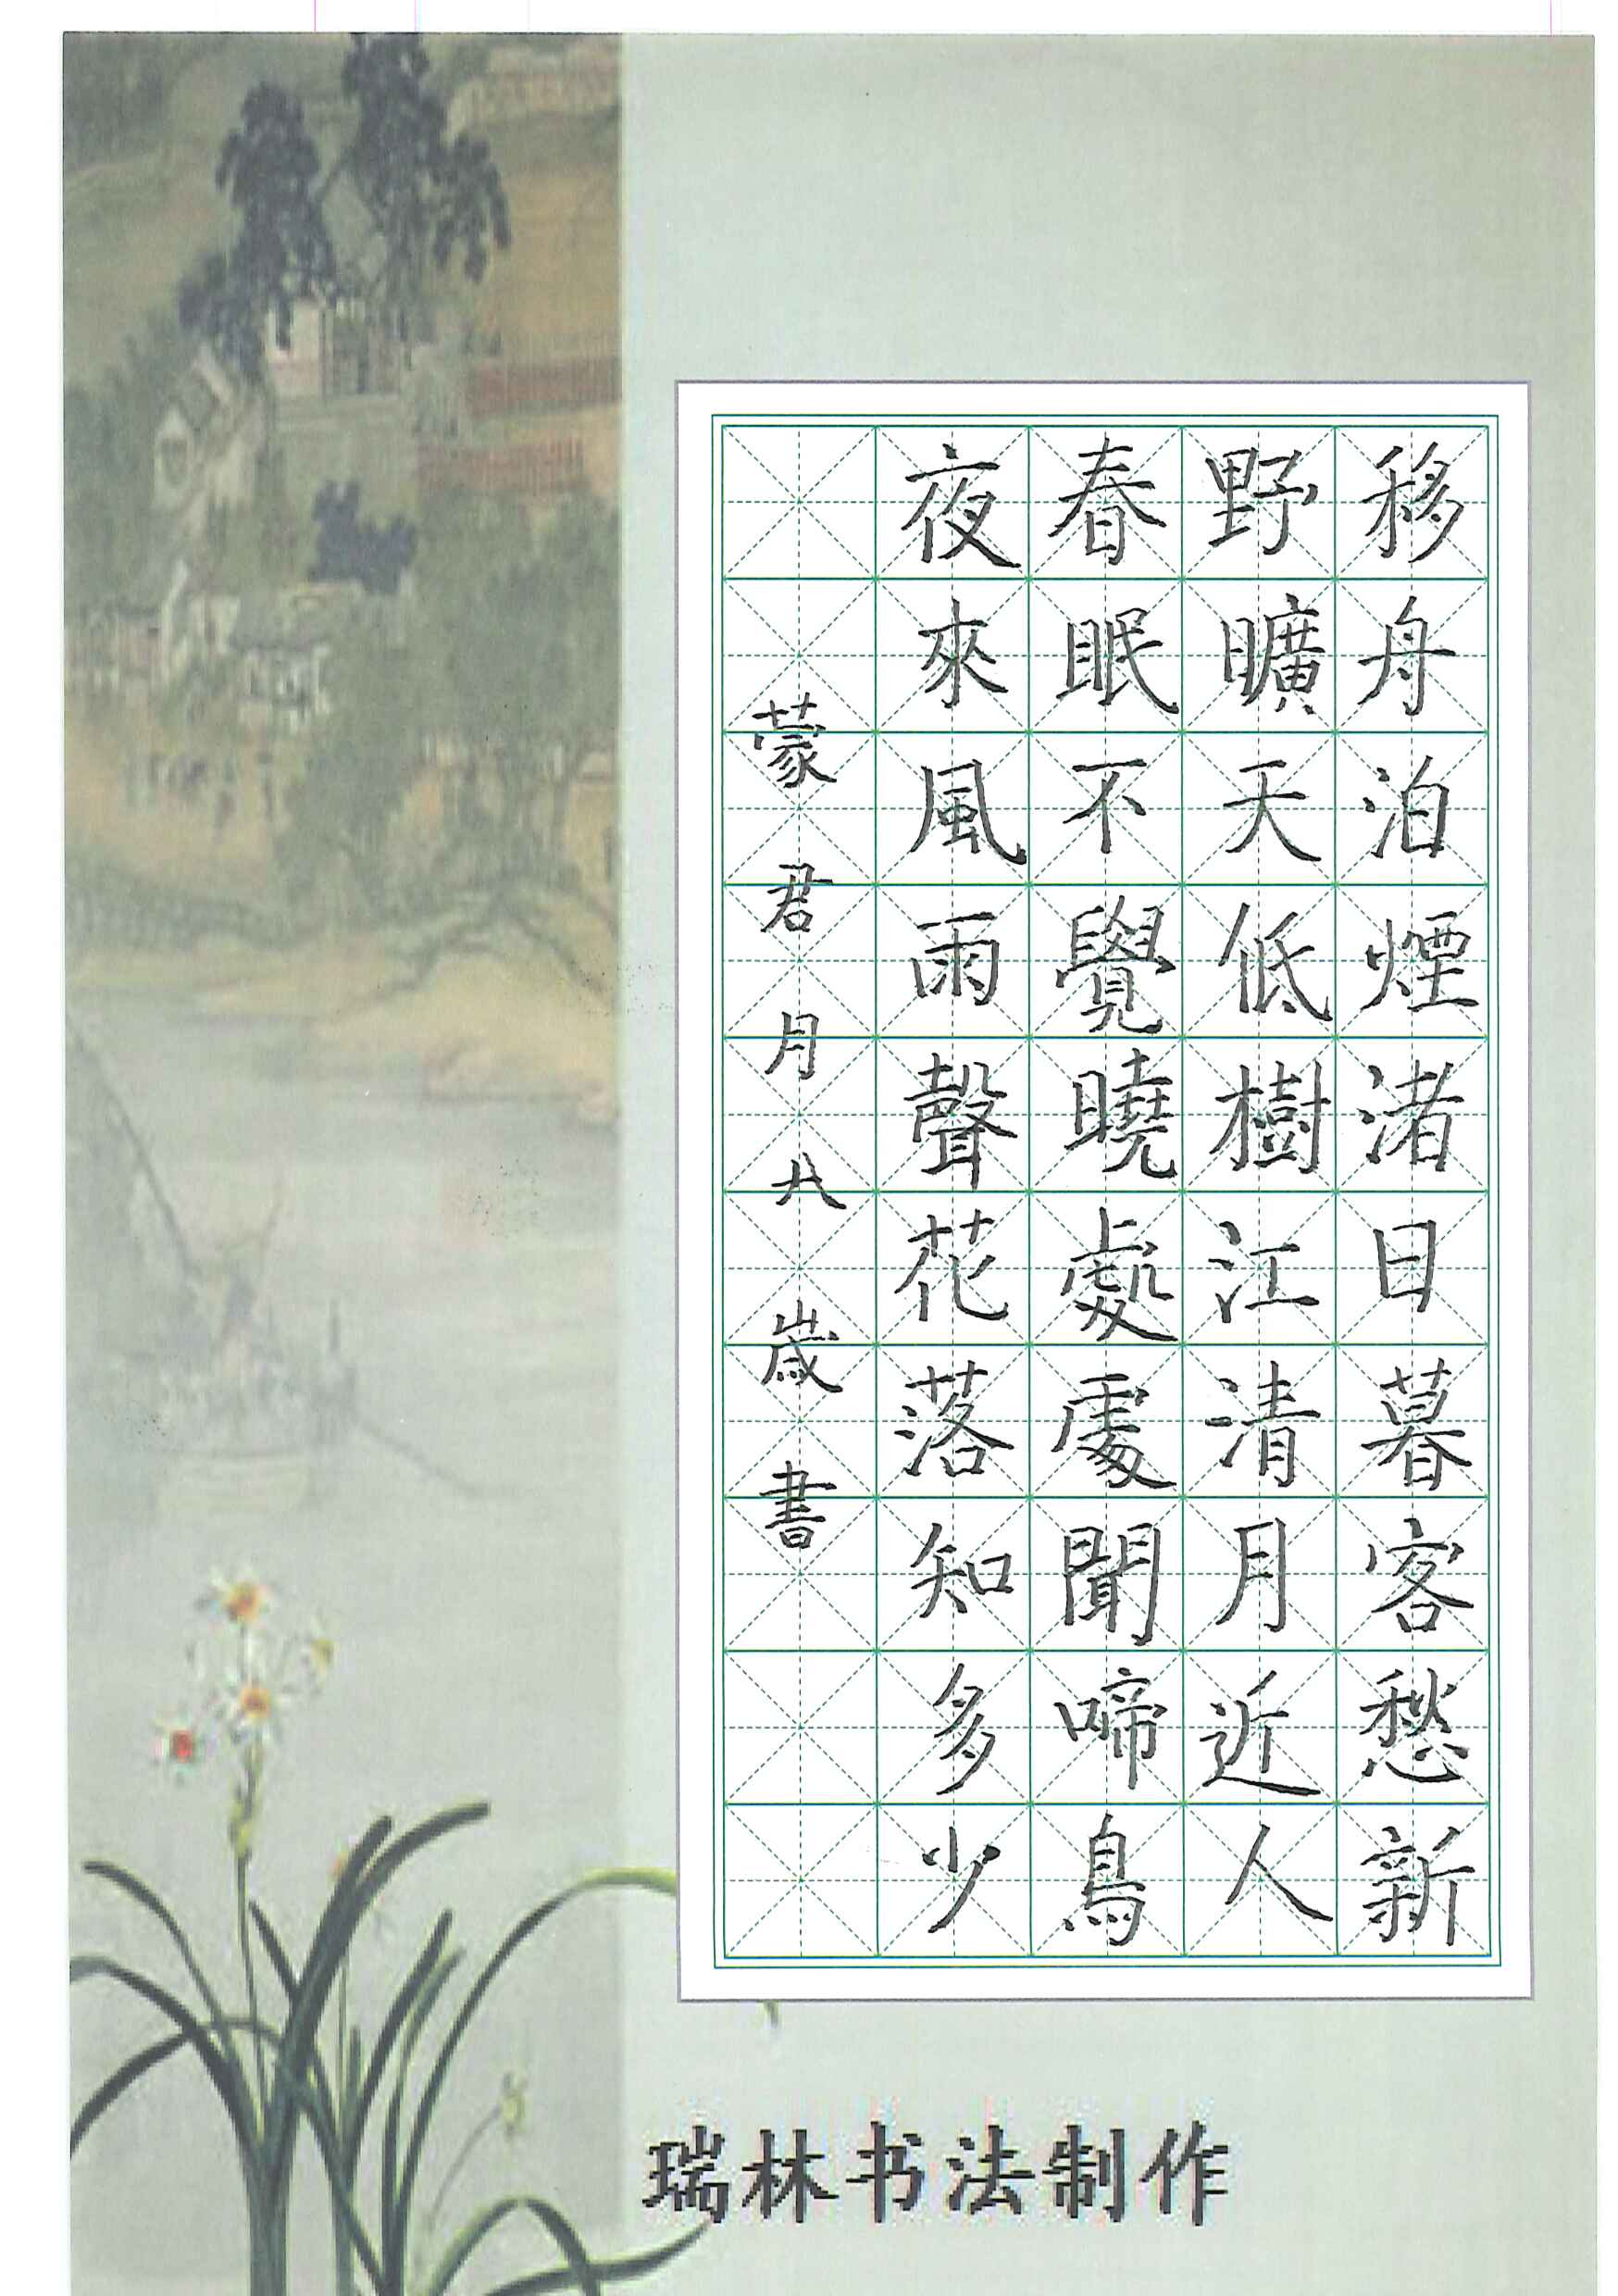 移舟泊煙渚日暮客愁新
野曠天低樹江清月近人
春眠不覺曉處處聞啼鳥
夜來風雨聲花落知多少
蒙君月八歲書
瑞林书法制作